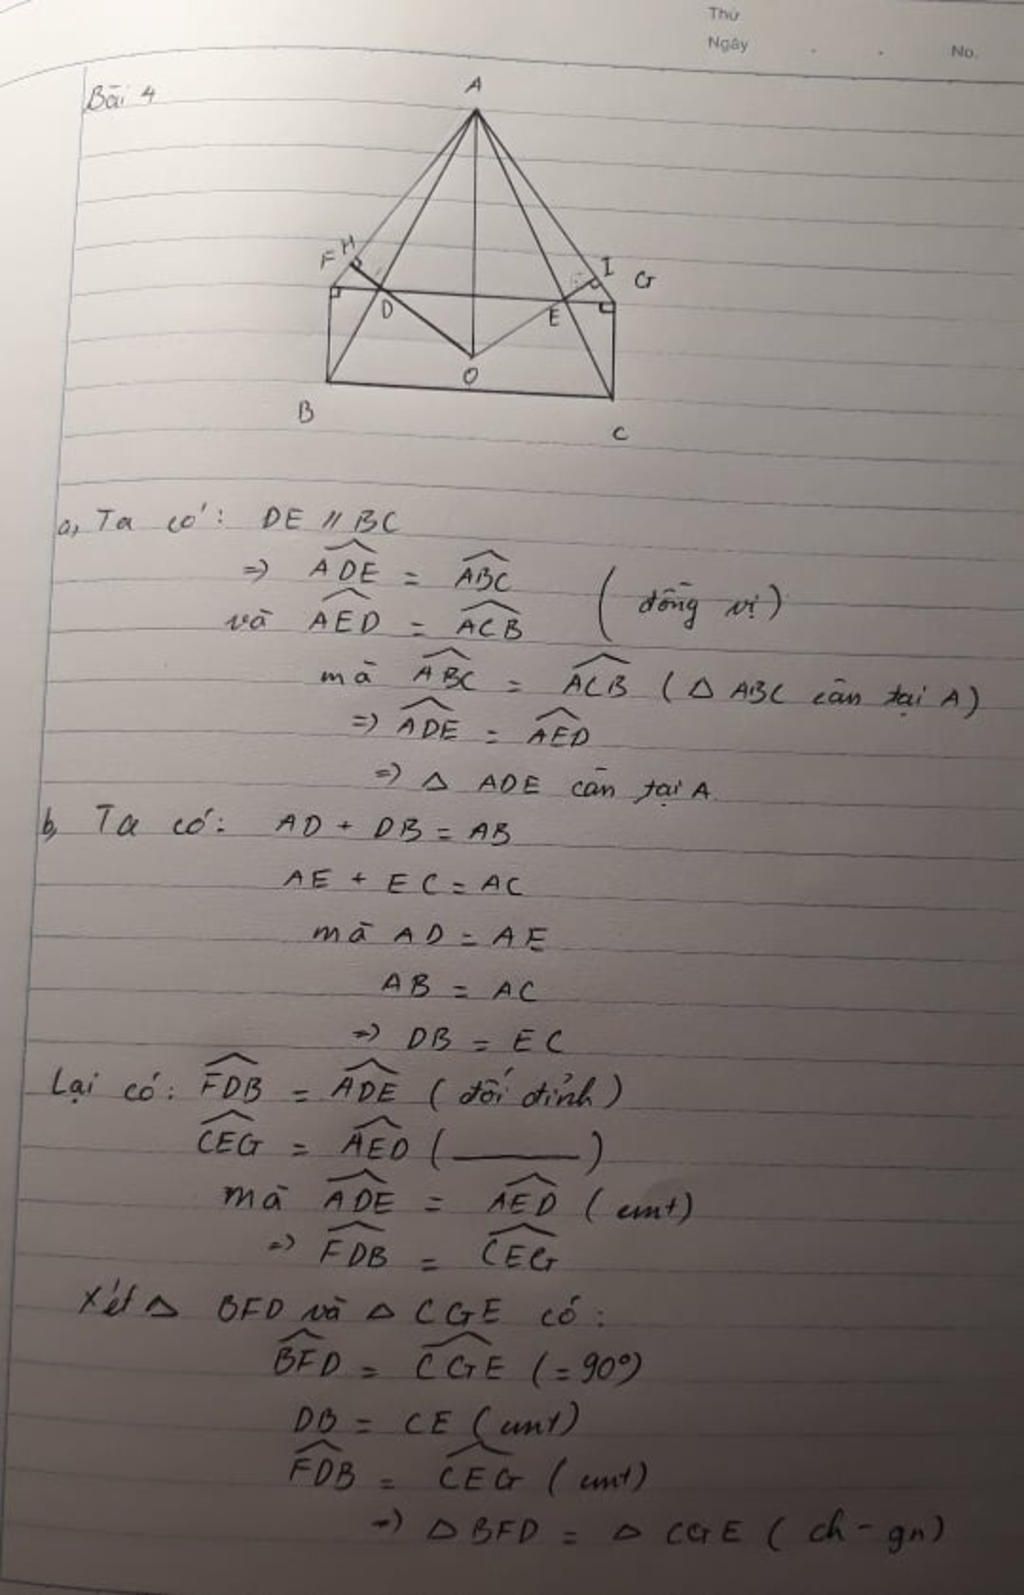 Thứ
Ngày . . No.
Bài 4
A
F H I G
D E
O
B
C
a, Ta có: DE // BC
=> ADE = ABC (đồng vị)
và AED = ACB
mà ABC = ACB (△ ABC cân tại A)
=> ADE = AED
=> △ ADE cân tại A
b, Ta có: AD + DB = AB
AE + EC = AC
mà AD = AE
AB = AC
=> DB = EC
Lại có: FDB = ADE (đối đỉnh)
CEG = AED (______)
mà ADE = AED (cmt)
=> FDB = CEG
Xét △ BFD và △ CGE có:
BFD = CGE (= 90°)
DB = CE (cmt)
FDB = CEG (cmt)
=> △ BFD = △ CGE (ch - gn)